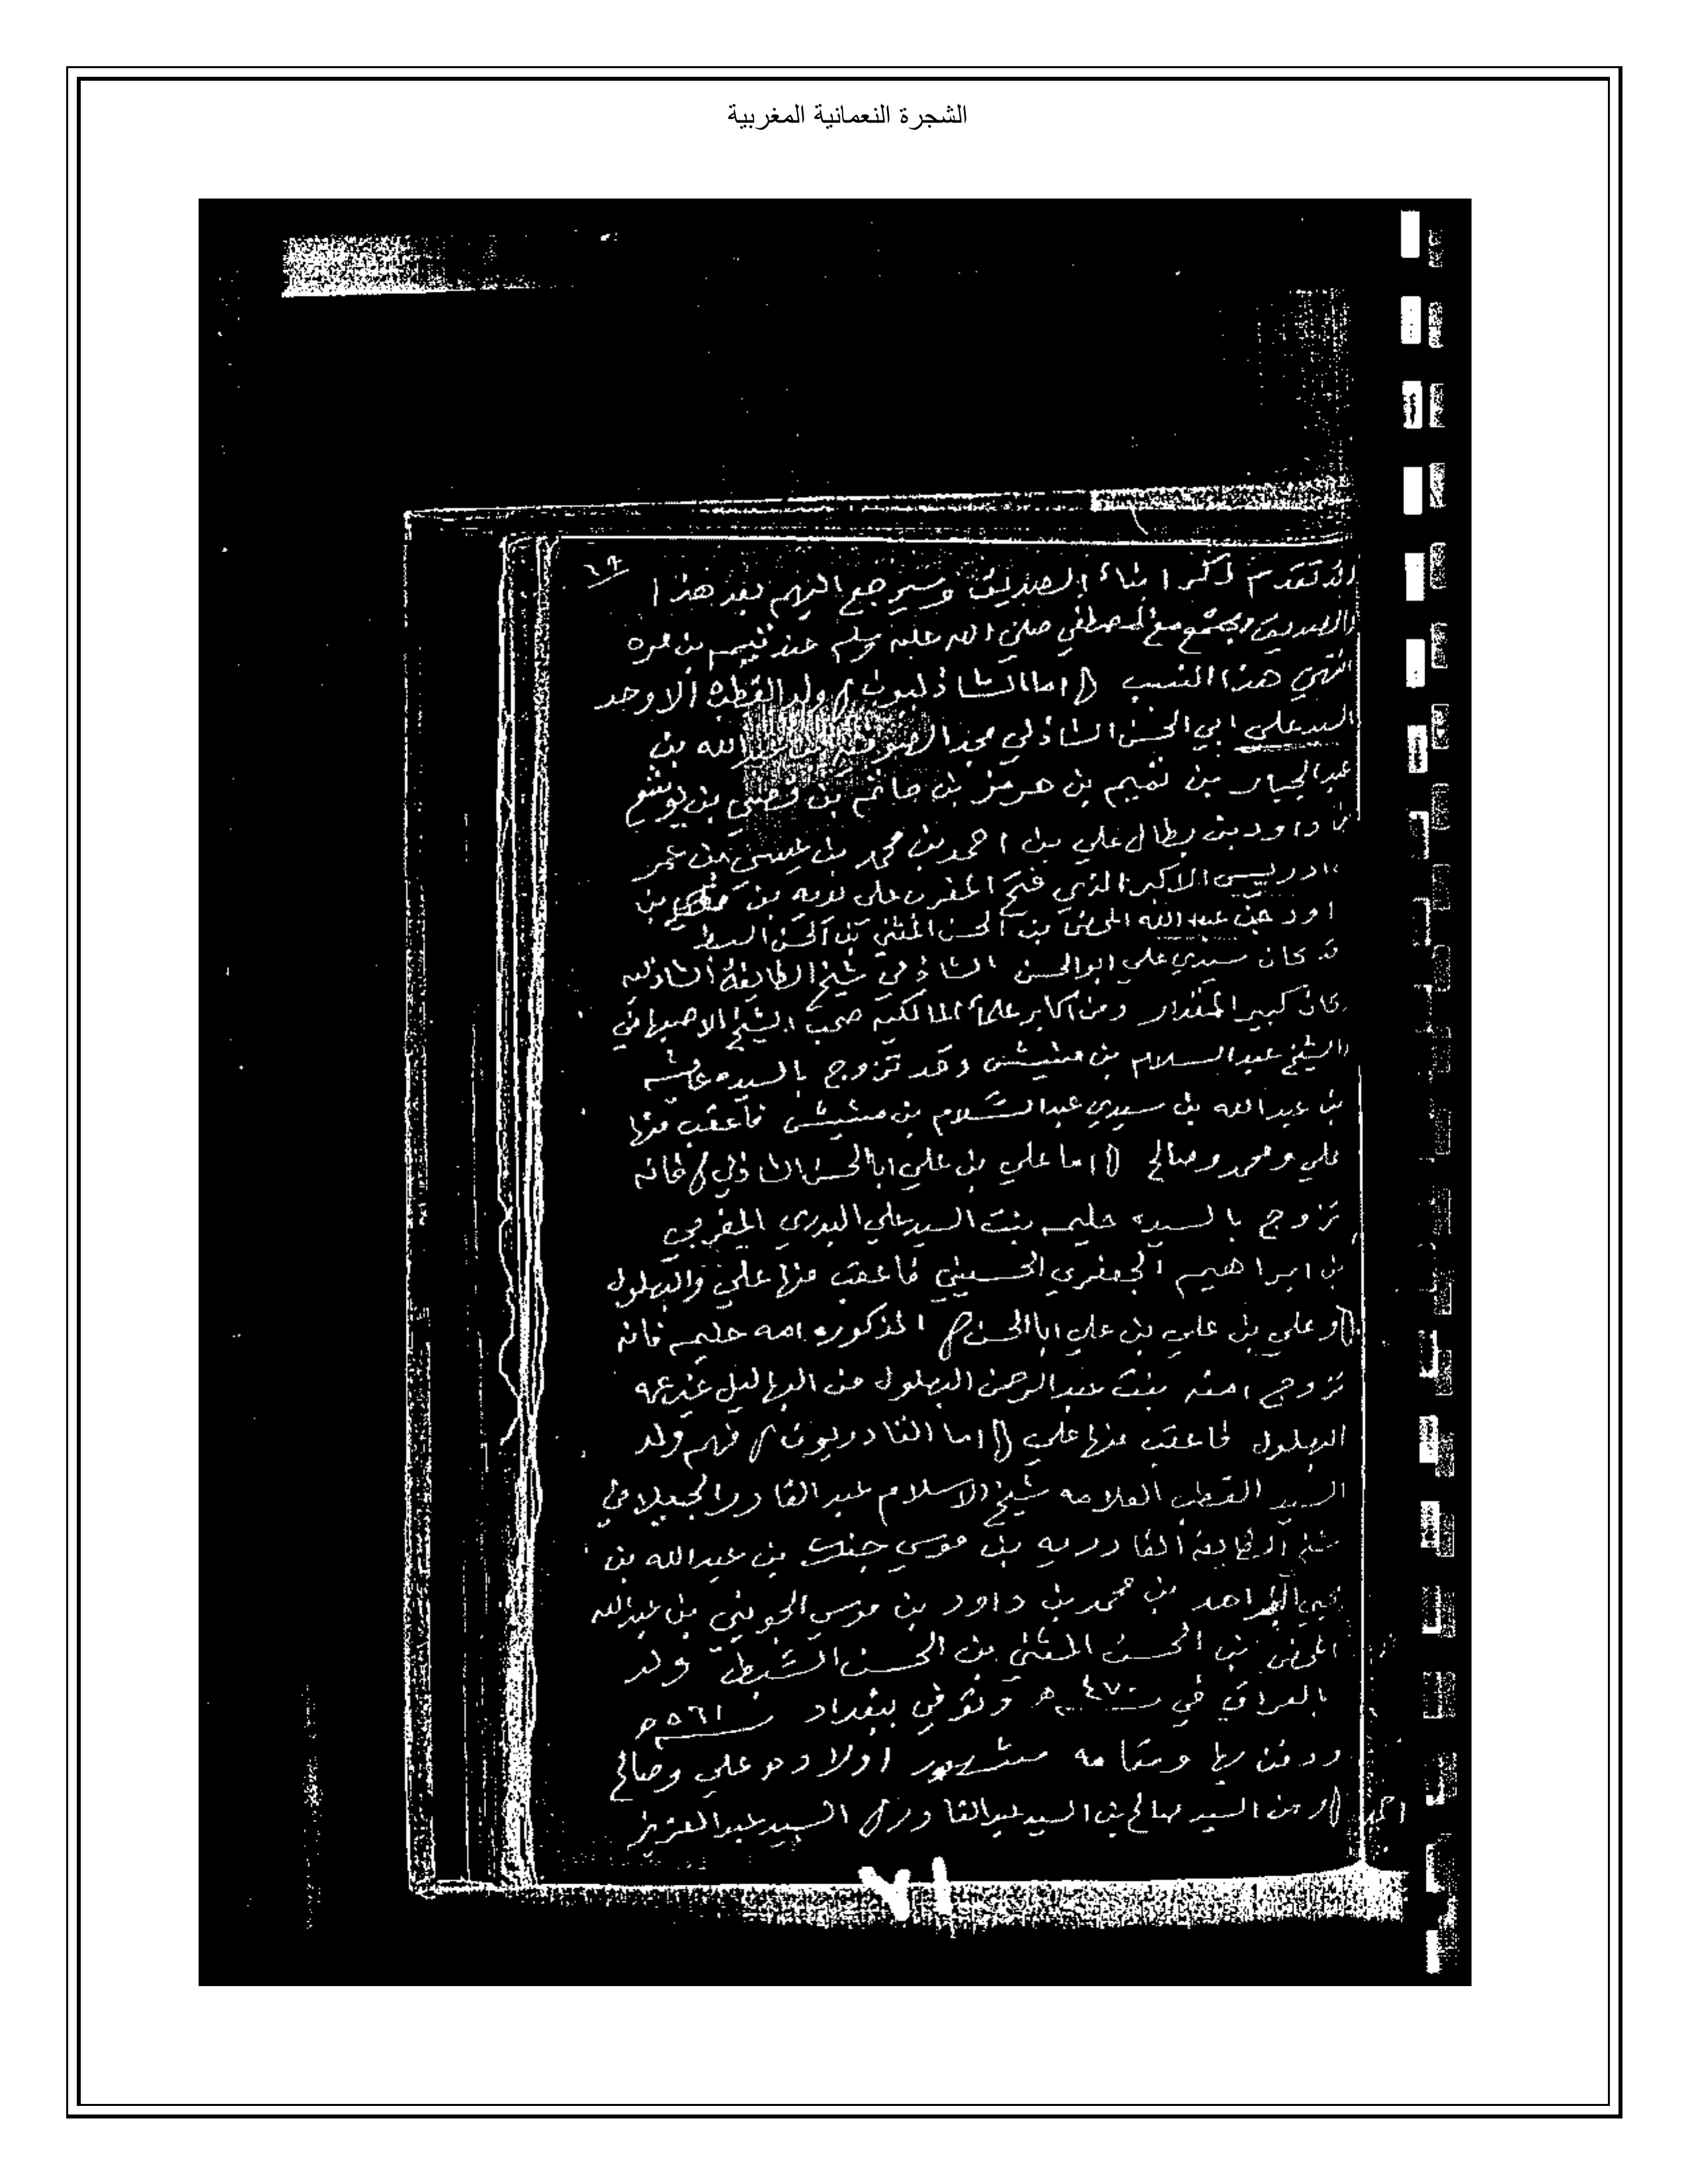 الشجرة النعمانية المغربية
تقدم ذكر ابناء الصديق وسيرجع اليهم بعد هذا
الصديق ويجتمع مع المصطفي صلى الله عليه وسلم عند تيم بن مره
انتهي هذا النسب ( اما الشاذليون ) ولد القطب الاوحد
السيد علي ابي الحسن الشاذلي مجد الصوفيه الله بن
عبد الجبار بن تميم بن هرمز بن حاتم بن قصي بن يوشع
داود بن بطال علي بن احمد بن محمد بن عيسى بن عمر
ادريس الاكبر الذي فتح المغرب علي يديه بن
عبد الله المحض بن الحسن المثني بن الحسن السبط
قد كان سيدي علي ابو الحسن الشاذلي شيخ الطايفة الشاذليه
كان كبير المقدار ومن اكابر علماء المالكيه صحب الشيخ الاصبهاني
الشيخ عبد السلام بن مشيش وقد تزوج بالسيده عائشه
بن عبد الله بن سيدي عبد السلام بن مشيش فاعقب منها
علي ومحمد وصالح ( اما علي بن علي ابا الحسن الشاذلي ) فانه
تزوج بالسيده حليمه بنت السيد علي البدري المغربي
بن ابراهيم الجعفري الحسيني فاعقب منها علي والبهلول
( وعلي بن علي بن علي ابا الحسن ) المذكوره امه حليمه فانه
تزوج امنه بنت عبد الرحمن البهلول من البهاليل
البهلول فاعقب منها علي ( اما القادريون ) فهم ولد
السيد القطب العلامه شيخ الاسلام عبد القادر الجيلاني
شيخ الطايفة القادريه بن موسي جنك بن عبد الله بن
الزاهد بن محمد بن داود بن موسي الجوني بن عبد الله
المحض بن الحسن المثني بن الحسن السبط ولد
بالعراق في ٤٧٠ ه وتوفي ببغداد ٥٦١ ه
ودفن بها ومقامه مشهور اولاده علي وصالح
احمد ( ومن السيد صالح بن السيد عبد القادر ) السيد عبد العزيز
٢١